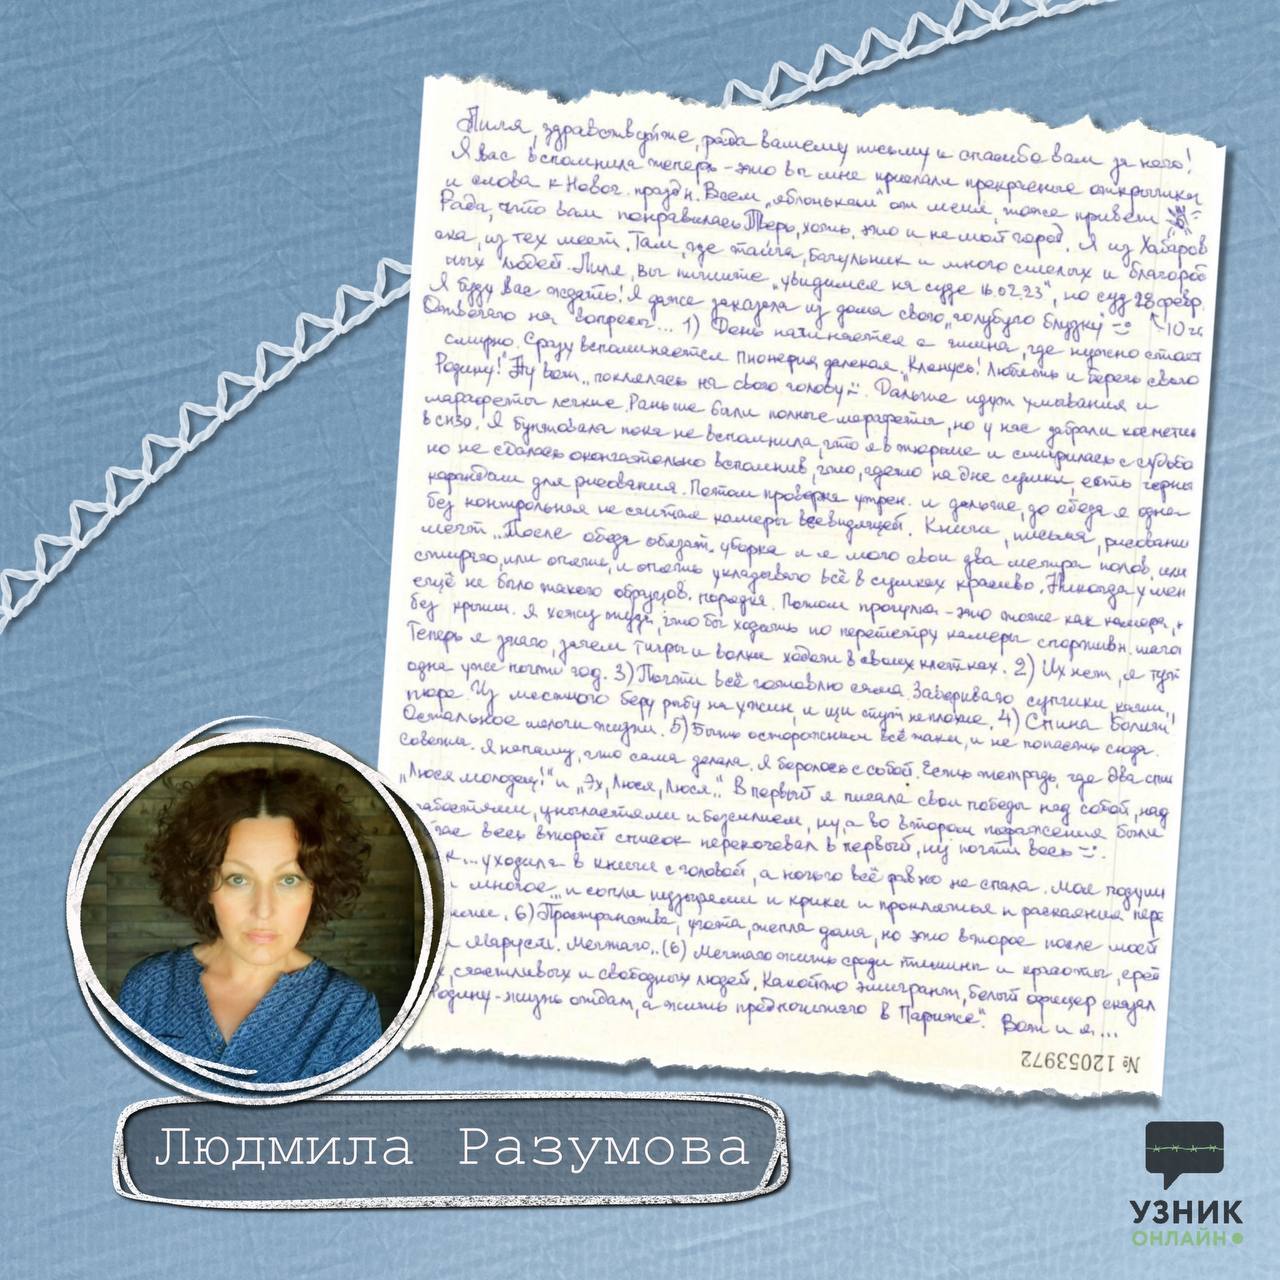 Лиля, здравствуйте, рада вашему письму и спасибо вам за него!
Я вас вспомнила теперь - это вы мне прислали прекрасные открытки
и слова к Новог. праздн! Всем „яблонькам" от меня, тоже привет
Рада, что вам понравилась Тверь, хоть, это и не мой город. Я из Хабаров
ска, из тех мест. Там, где тайга, багульник и много смелых и благород
ных людей. Лиля, вы пишите „увидимся на суде 16.02.23", но суд 28 февр.
Я буду вас ждать! Я даже заказала из дома свою „голубую блузку" 10
Отвечаю на вопросы... 1) День начинается с гимна, где нужно стоять
смирно. Сразу вспоминается пионерия далекая „Клянусь! Любить и беречь свою
Родину!" Ну вот.. поклялась на свою голову. Дальше идут умывания и
марафеты легкие. Раньше были полные марафеты, но у нас забрали косметик
в сизо. Я бунтовала пока не вспомнила, что я в тюрьме и смирилась с судьбо
но не сдалась окончательно вспомнив, что, где-то на дне сумки, есть черны
карандаш для рисования. Потом проверка утрен. и дальше, до обеда я одна
без контроля не считая камеры всевидящей. Книги, письма, рисовани
мечт.. После обеда обязат. уборка и я мою свои два метра полов, или
стираю, или опять, и опять укладываю всё в сумках красиво. Никогда у мен
ещё не было такого образцов. порядка. Потом прогулка - это тоже как камера,
без крыши. Я хожу туда, что бы ходить по периметру камеры спортивн. шаго
Теперь я знаю, зачем тигры и волки ходят в своих клетках. 2) Их нет, я тут
одна уже почти год. 3) Почти всё готовлю сама. Завариваю супчики, каши,
пюре. Из местного беру рыбу на ужин, и щи тут неплохие. 4) Спина болит!
Остальное мелочи жизни. 5) Быть осторожным всё таки, и не попасть сюда.
советы. Я напишу, что сама делала. Я боролась с собой. Есть тетрадь, где два спи
„Люся молодец!" и „Эх, Люся, Люся.." В первый я писала свои победы над собой, над
слабостями, унылостями и бессилием, ну, а во втором поражения были
весь второй список перекочевал в первый, ну почти весь.
уходила в книги с головой, а ночью всё равно не спала. Моя подушк
многое... и сопли пузырями и крики и проклятья и раскаяния пере
6) Пространства, уюта, тепла дома, но это второе после моей
Маруси. Мечтаю.. (6) Мечтаю жить среди тишины и красоты, сред
счастливых и свободных людей. Какой-то эмигрант, белый офицер сказал
Родину - жизнь отдам, а жить предпочитаю в Париже". Вот и я...
№ 12053972
Людмила Разумова
УЗНИК
ОНЛАЙН